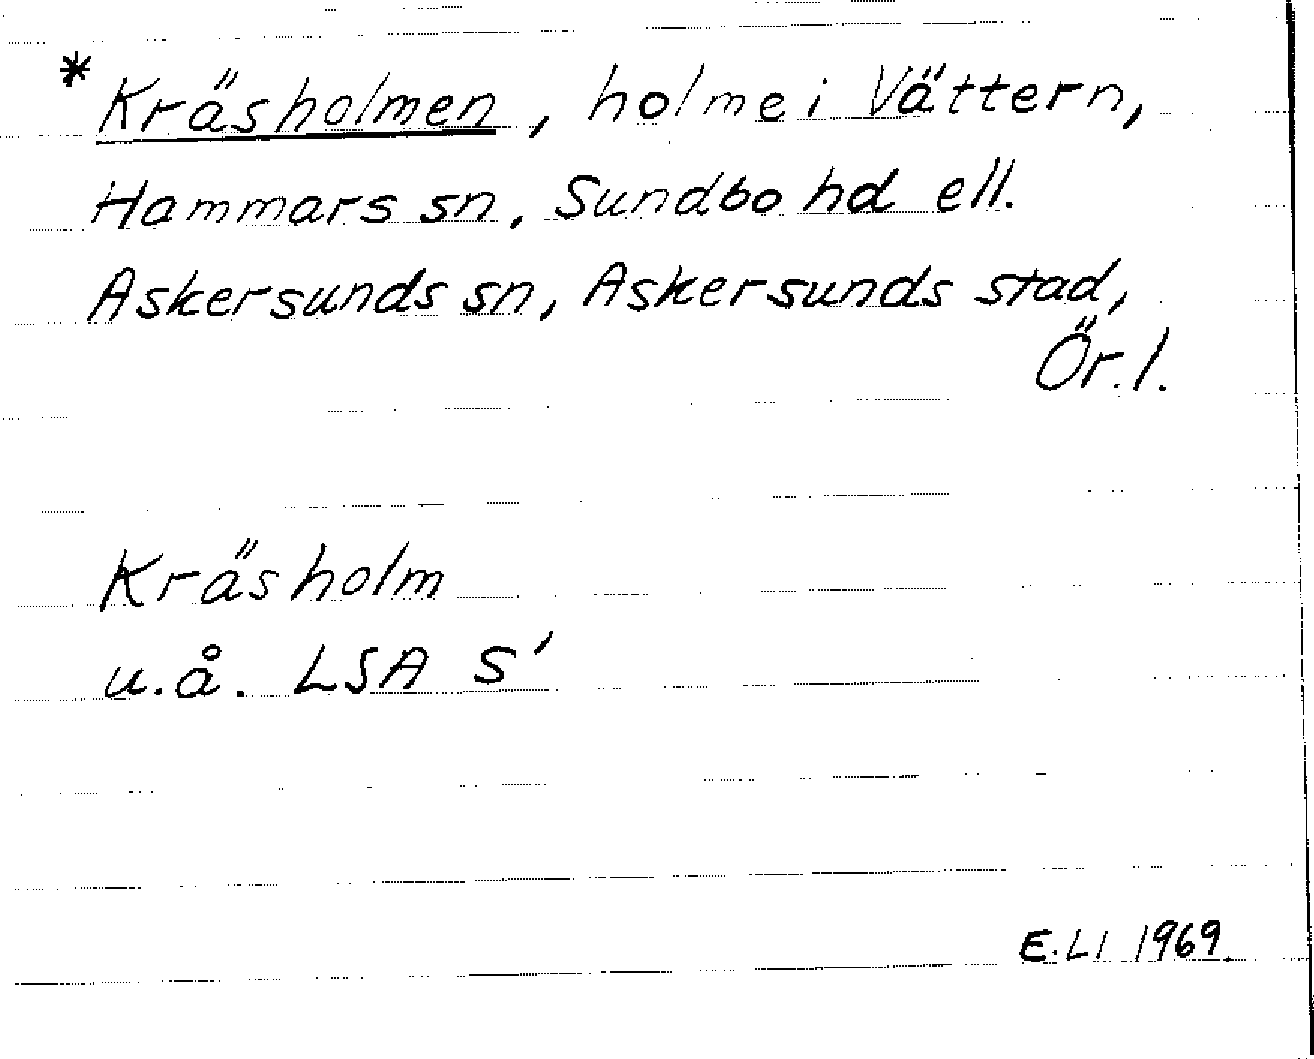 * Kräsholmen, holme i Vättern,
Hammars sn, Sundbo hd ell.
Askersunds sn, Askersunds stad,
Ör. l.
Kräsholm
u.å. LSA S'
E. Ll 1969.